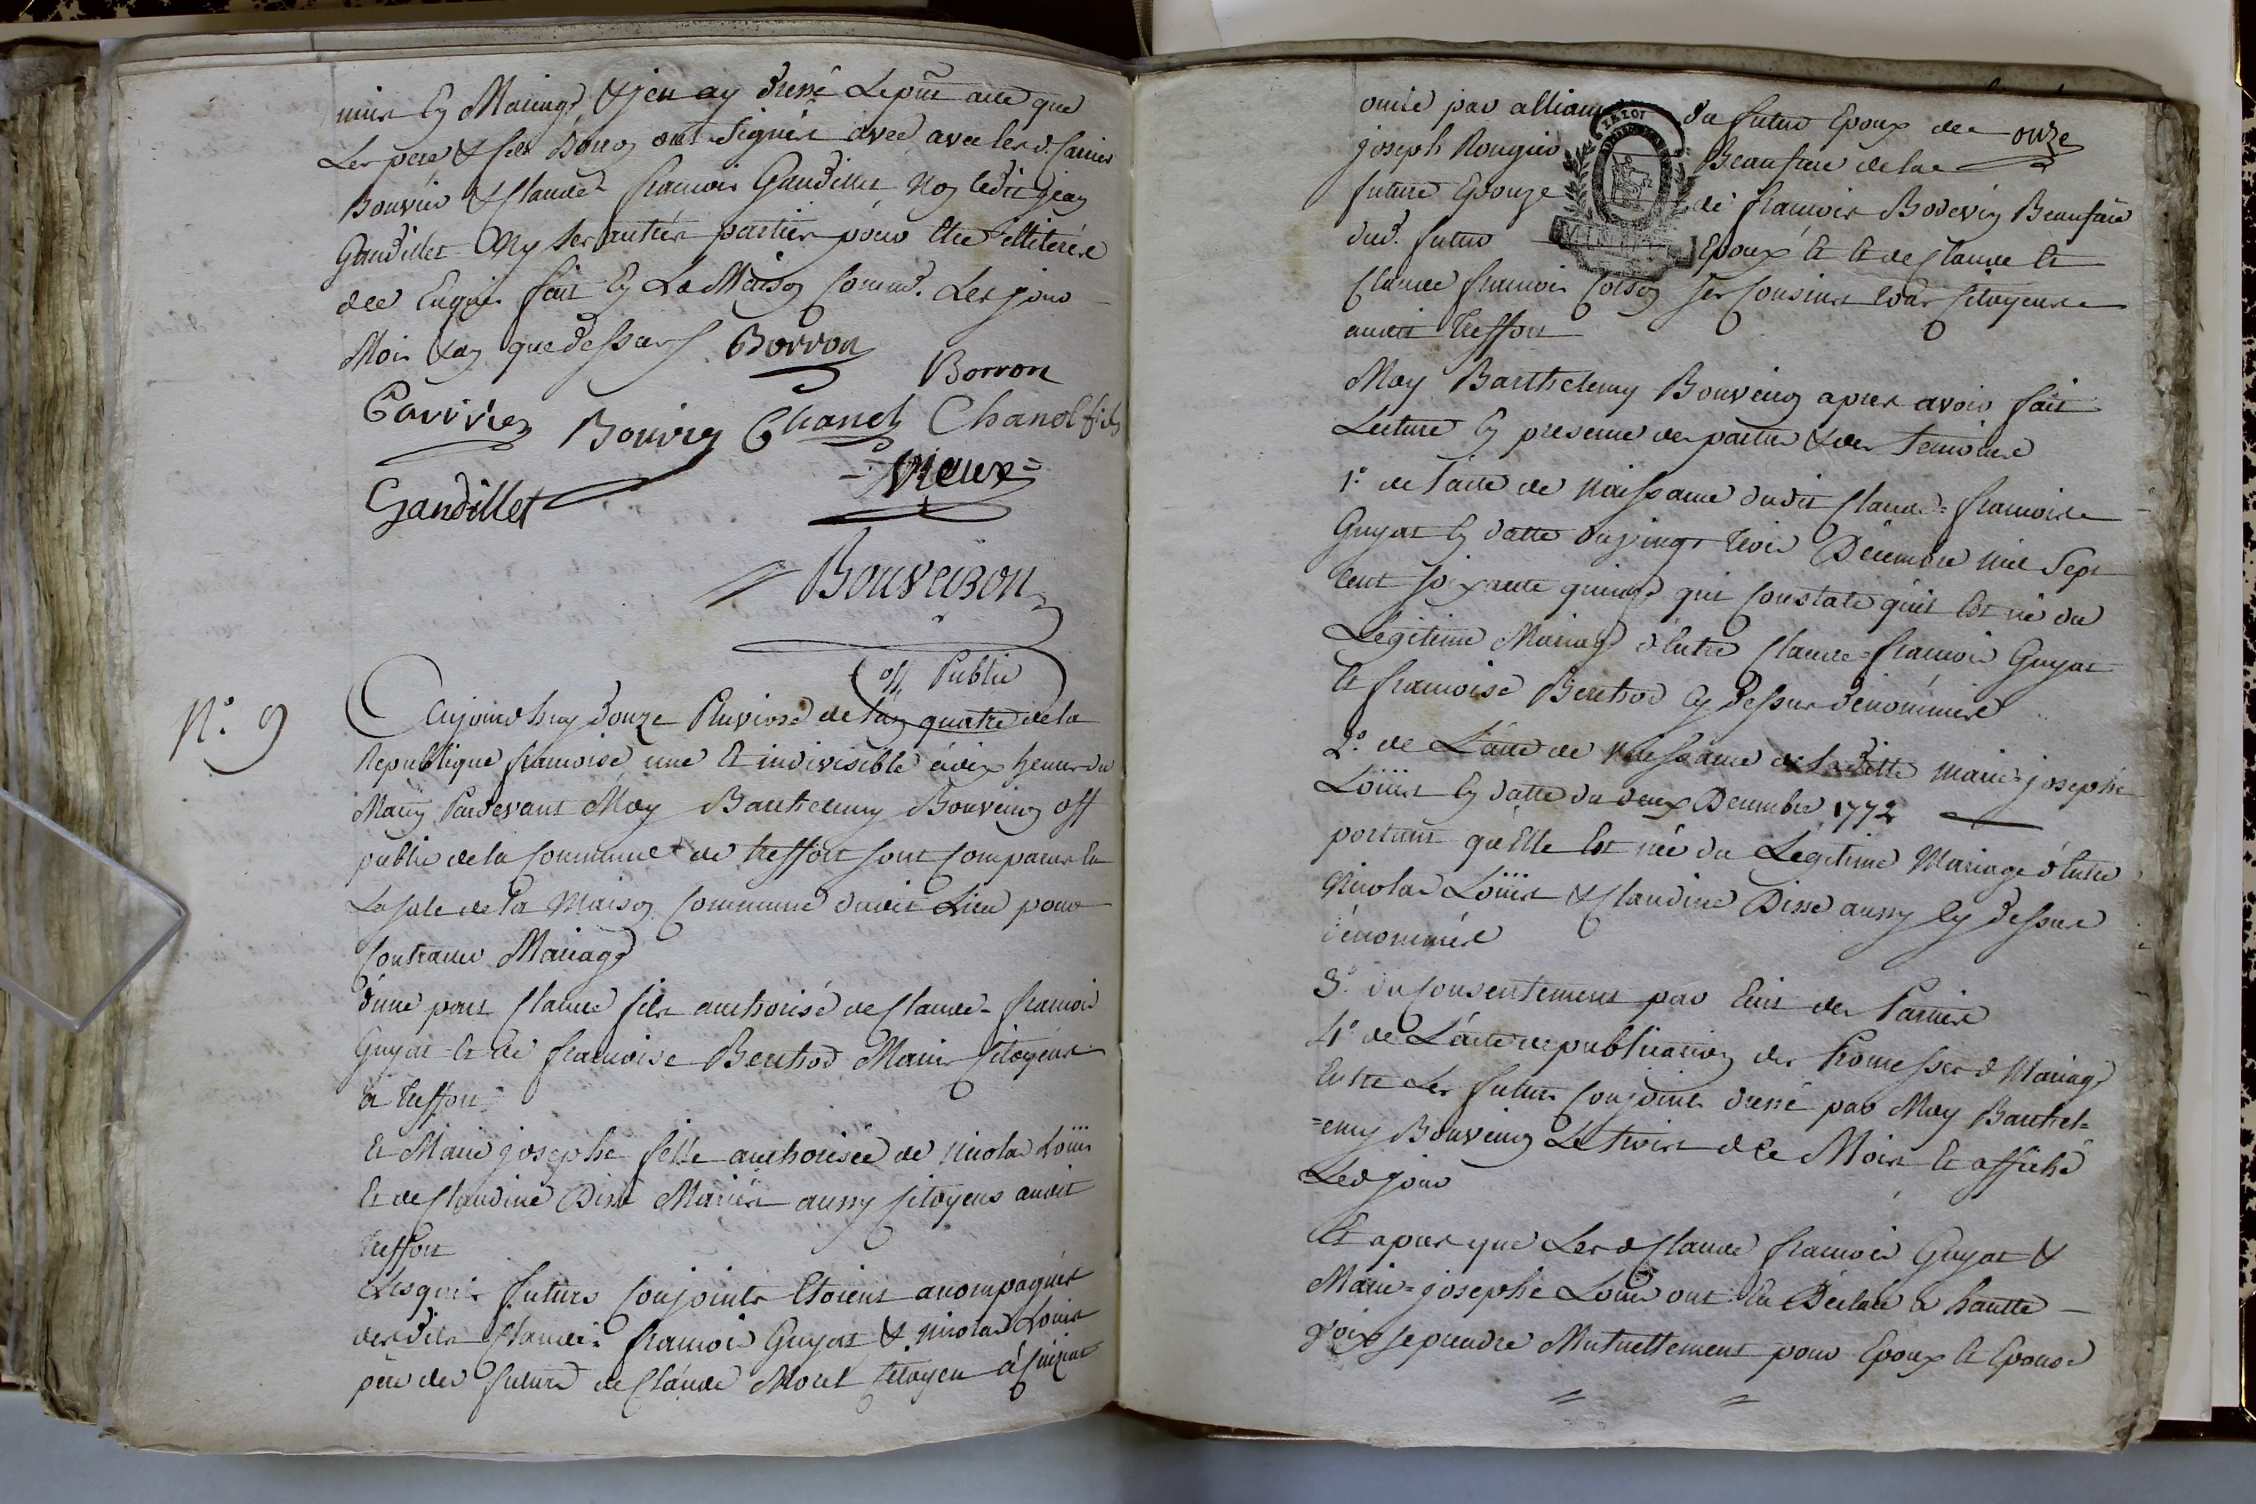 unis en Mariage & j'en ay dressé le pnt acte que
Les pere & fils Borron ont signés avec avec les d. Carrier
Bouvier & Claude francois Gandillet non ledit jean
Gandillet Ny les autres parties pour être illiterés
de ce Enquis fait en La Maison Comm.e Les jour
Mois & an que dessus Borron
Borron
Carrier Bouvier Chanel Chanel fils
Gandillet =Vieux=
Bouveiron
off Public
N.° 9
Aujourdhuy Douze Pluviose de l'an quatre de la
Republique francoise une et indivisible à dix heures du
Matin Pardevant Moy Barthelemy Bouveiron off
public de la Commune de treffort sont comparus en
La sale de la Maison Commune dudit Lieu pour
Contracter Mariage
d'une part Claude fils authorisé de Claude-francois
Guyat et de francoise Berthod Mariés Citoyens
à treffort
Et Marie josephe fille authorisée de Nicolas Loüis
Et de Claudine Disse Mariés aussy Citoyens audit
treffort
Lesquels futurs Conjoints Etoient accompagnés
desdits Claude francois Guyat & Nicolas Louis
pere des futurs de Claude Morel Citoyen à Cuisiat
oncle par alliance du futur Epoux de
onze
joseph Beaufrere de la
future Epouze de francois Bodevin Beaufrere
dud. futur Epoux & et de Claude et
Claude francois Colson ses Cousins tous Citoyens
audit treffort
Moy Barthelemy Bouveiron apres avoir fait
Lecture en presence des parties & des temoins
1.° de l'acte de Naissance dudit Claude=francois
Guyat en datte du vingt trois Décembre mil sept
cent soixante quinze qui Constate qu'il Est né du
Légitime Mariage d'Entre Claude=francois Guyat
et francoise Berthod cy dessus dénommés
2.° de L'acte de Naissance de Laditte Marie=josephe
Loüis en datte du deux Decembre 1772
portant qu'Elle Est née du Légitime Mariage d'Entre
Nicolas Loüis & Claudine Disse aussy cy dessus
dénommés
3.° du Consentement par Ecrit des Parties
4.° de L'acte de publication des Promesses de Mariage
Entre Les futurs Conjoints dressé par Moy Barthel=
=emy Bouveiron Le trois de Ce Mois et affiché
Led jour
Et apres que Les d Claude francois Guyat &
Marie=josephe Louis ont Eu Déclaré à hautte
voix se prendre Mutuellement pour Epoux et Epouse